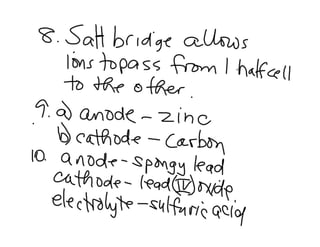 8. Salt bridge allows
ions to pass from 1 half cell
to the other.
9. a) anode - zinc
b) cathode - carbon
10. anode - spongy lead
cathode - lead (IV) oxide
electrolyte - sulfuric acid